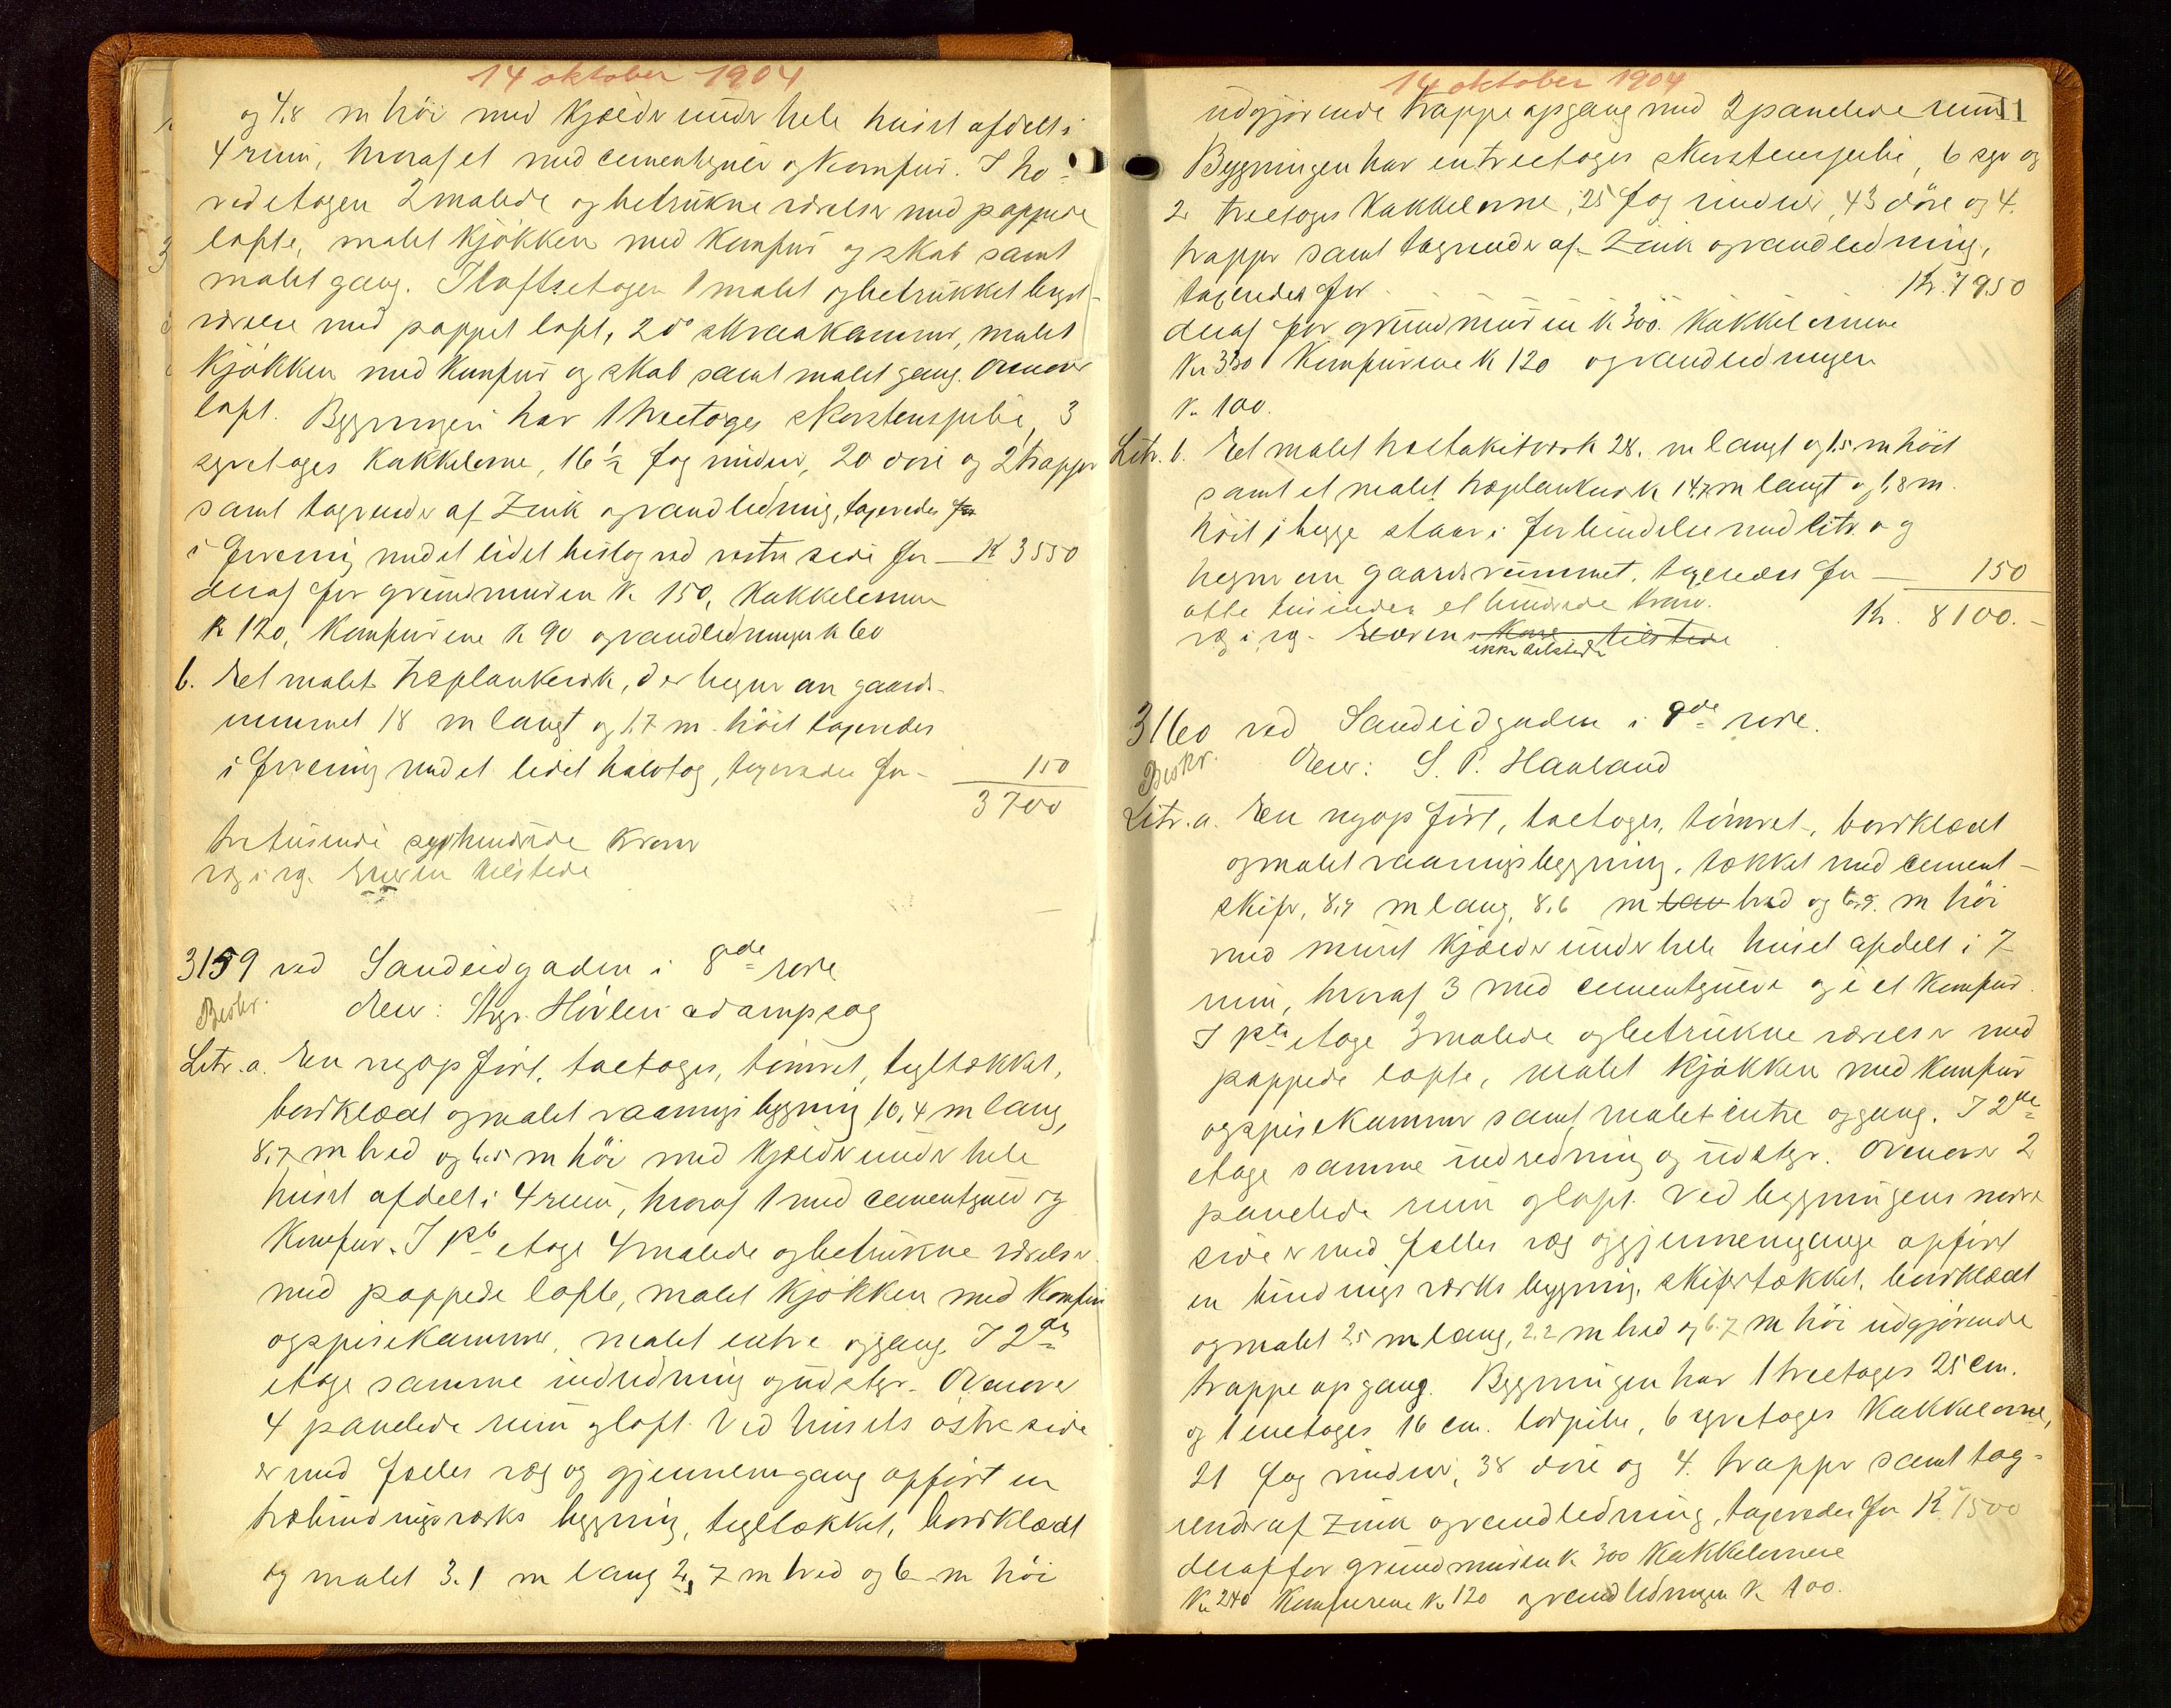 14 oktober 1904
og 4.8 m höi med kjælder under hele huset afdelt i
4 rum, hvoraf et med cementgulv og komfur. I ho-
vedetagen 2 malede og betrukne værelser med pappede
lofte, malet kjökken med komfur og skab samt
malet gang. I loftsetagen 1 malet og betrukket kvist-
værelse med pappet loft, 2 do skraakammer, malet
kjökken med komfur og skab samt malet gang. Ovenover
loft. Bygningen har 1 treetages skorstenspibe, 3
etages kakkelovne, 16 1/2 fag vinduer, 20 döre og 2 trapper
samt tagrender af zink og vandledning, taxeredes for
i forening med et lidet bislag ved vestre side for — K 3550
deraf for grundmuren K. 150, kakkelovnene
K 120, komfurene K 90 og vandledningen K 60
b. Et malet træplankeværk, der hegner om gaards-
rummet 18 m langt og 1.7 m. höit taxeredes
i forening med et lidet halvtag, taxeredes for - 150
3700
tretusinde syvhundrede kroner
væg i væg. Eieren tilstede
3159 ved Sandeidgaden i 8de rode
Beskr. Eier: Stvgr. Hövleri & dampsag
Litr. a. En nyopfört, toetages, tömret, tegltækket,
bordklædt og malet vaaningsbygning 10,4 m lang,
8.7 m bred og 6.5 m höi med kjælder under hele
huset afdelt i 4 rum, hvoraf 1 med cementgulv og
komfur. I 1ste etage 4 malede og betrukne værelser
med pappede lofte, malet kjökken med komfur
og spisekammer, malet entre og gang. I 2den
etage samme indredning og udstyr. Ovenover
4 panelede rum og loft. Ved husets östre side
er med fælles væg og gjennemgang opfört en
træbindingsværks bygning, tegltækket, bordklædt
og malet 3.1 m lang 2,7 m bred og 6 m höi
14 oktober 1904
11
udgjörende trappeopgang med 2 panelede rum
Bygningen har en treetages skorstenspibe, 6 og
2 treetages kakkelovne, 25 fag vinduer, 43 döre og 4.
trapper samt tagrender af zink og vandledning,
taxeredes for Kr. 7950
deraf for grundmuren K 300. kakkelovnene
Kr 330 komfurene K 120 og vandledningen
K. 100.
Litr. b. Et malet træstakitværk 28. m langt og 1.5 m höit
samt et malet træplankeværk 14.7 m langt og 1,8 m.
höit, begge staar i forbindelse med litr. a og
hegner om gaardsrummet, taxeredes for — 150
otte tusinde et hundrede kroner. Kr. 8100.-
væg i væg. Eieren ikke tilstede
3160 ved Sandeidgaden i 8de rode.
Beskr. Eier: S. P. Haaland
Litr. a. En nyopfört, toetages, tömret, bordklædt
og malet vaaningsbygning, tækket med cement-
skifer, 8,9 m lang, 8.6 m bred og 6,9. m höi
med muret kjælder under hele huset afdelt i 7
rum, hvoraf 3 med cementgulve og i et komfur.
I 1ste etage 3 malede og betrukne værelser med
pappede lofte, malet kjökken med komfur
og spisekammer samt malet entre og gang. I 2den
etage samme indredning og udstyr. Ovenover 2
panelede rum og loft. Ved bygningens nordre
side er med fælles væg og gjennemgange opfört
en bindingsværks bygning, skifertækket, bordklædt
og malet 2.5 m lang, 2.2 m bred og 6.7 m höi udgjörende
trappeopgang. Bygningen har 1 treetages 25 cm.
og 1 enetages 16 cm. rörpibe, 6 etages kakkelovne,
21 fag vinduer, 38 döre og 4. trapper samt tag-
render af zink og vandledning, taxeredes for K. 7500
deraf for grundmuren K. 300 kakkelovnene
Kr 240 komfurene K. 120 og vandledningen K. 100.